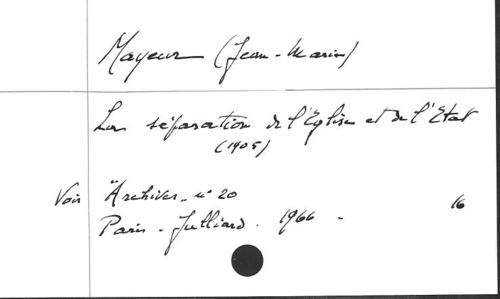 Mayeur (Jean-Marie)
La séparation de l'Eglise et de l'Etat
(1905)
Voir "Archives" n° 20 16
Paris - Julliard. 1966 -